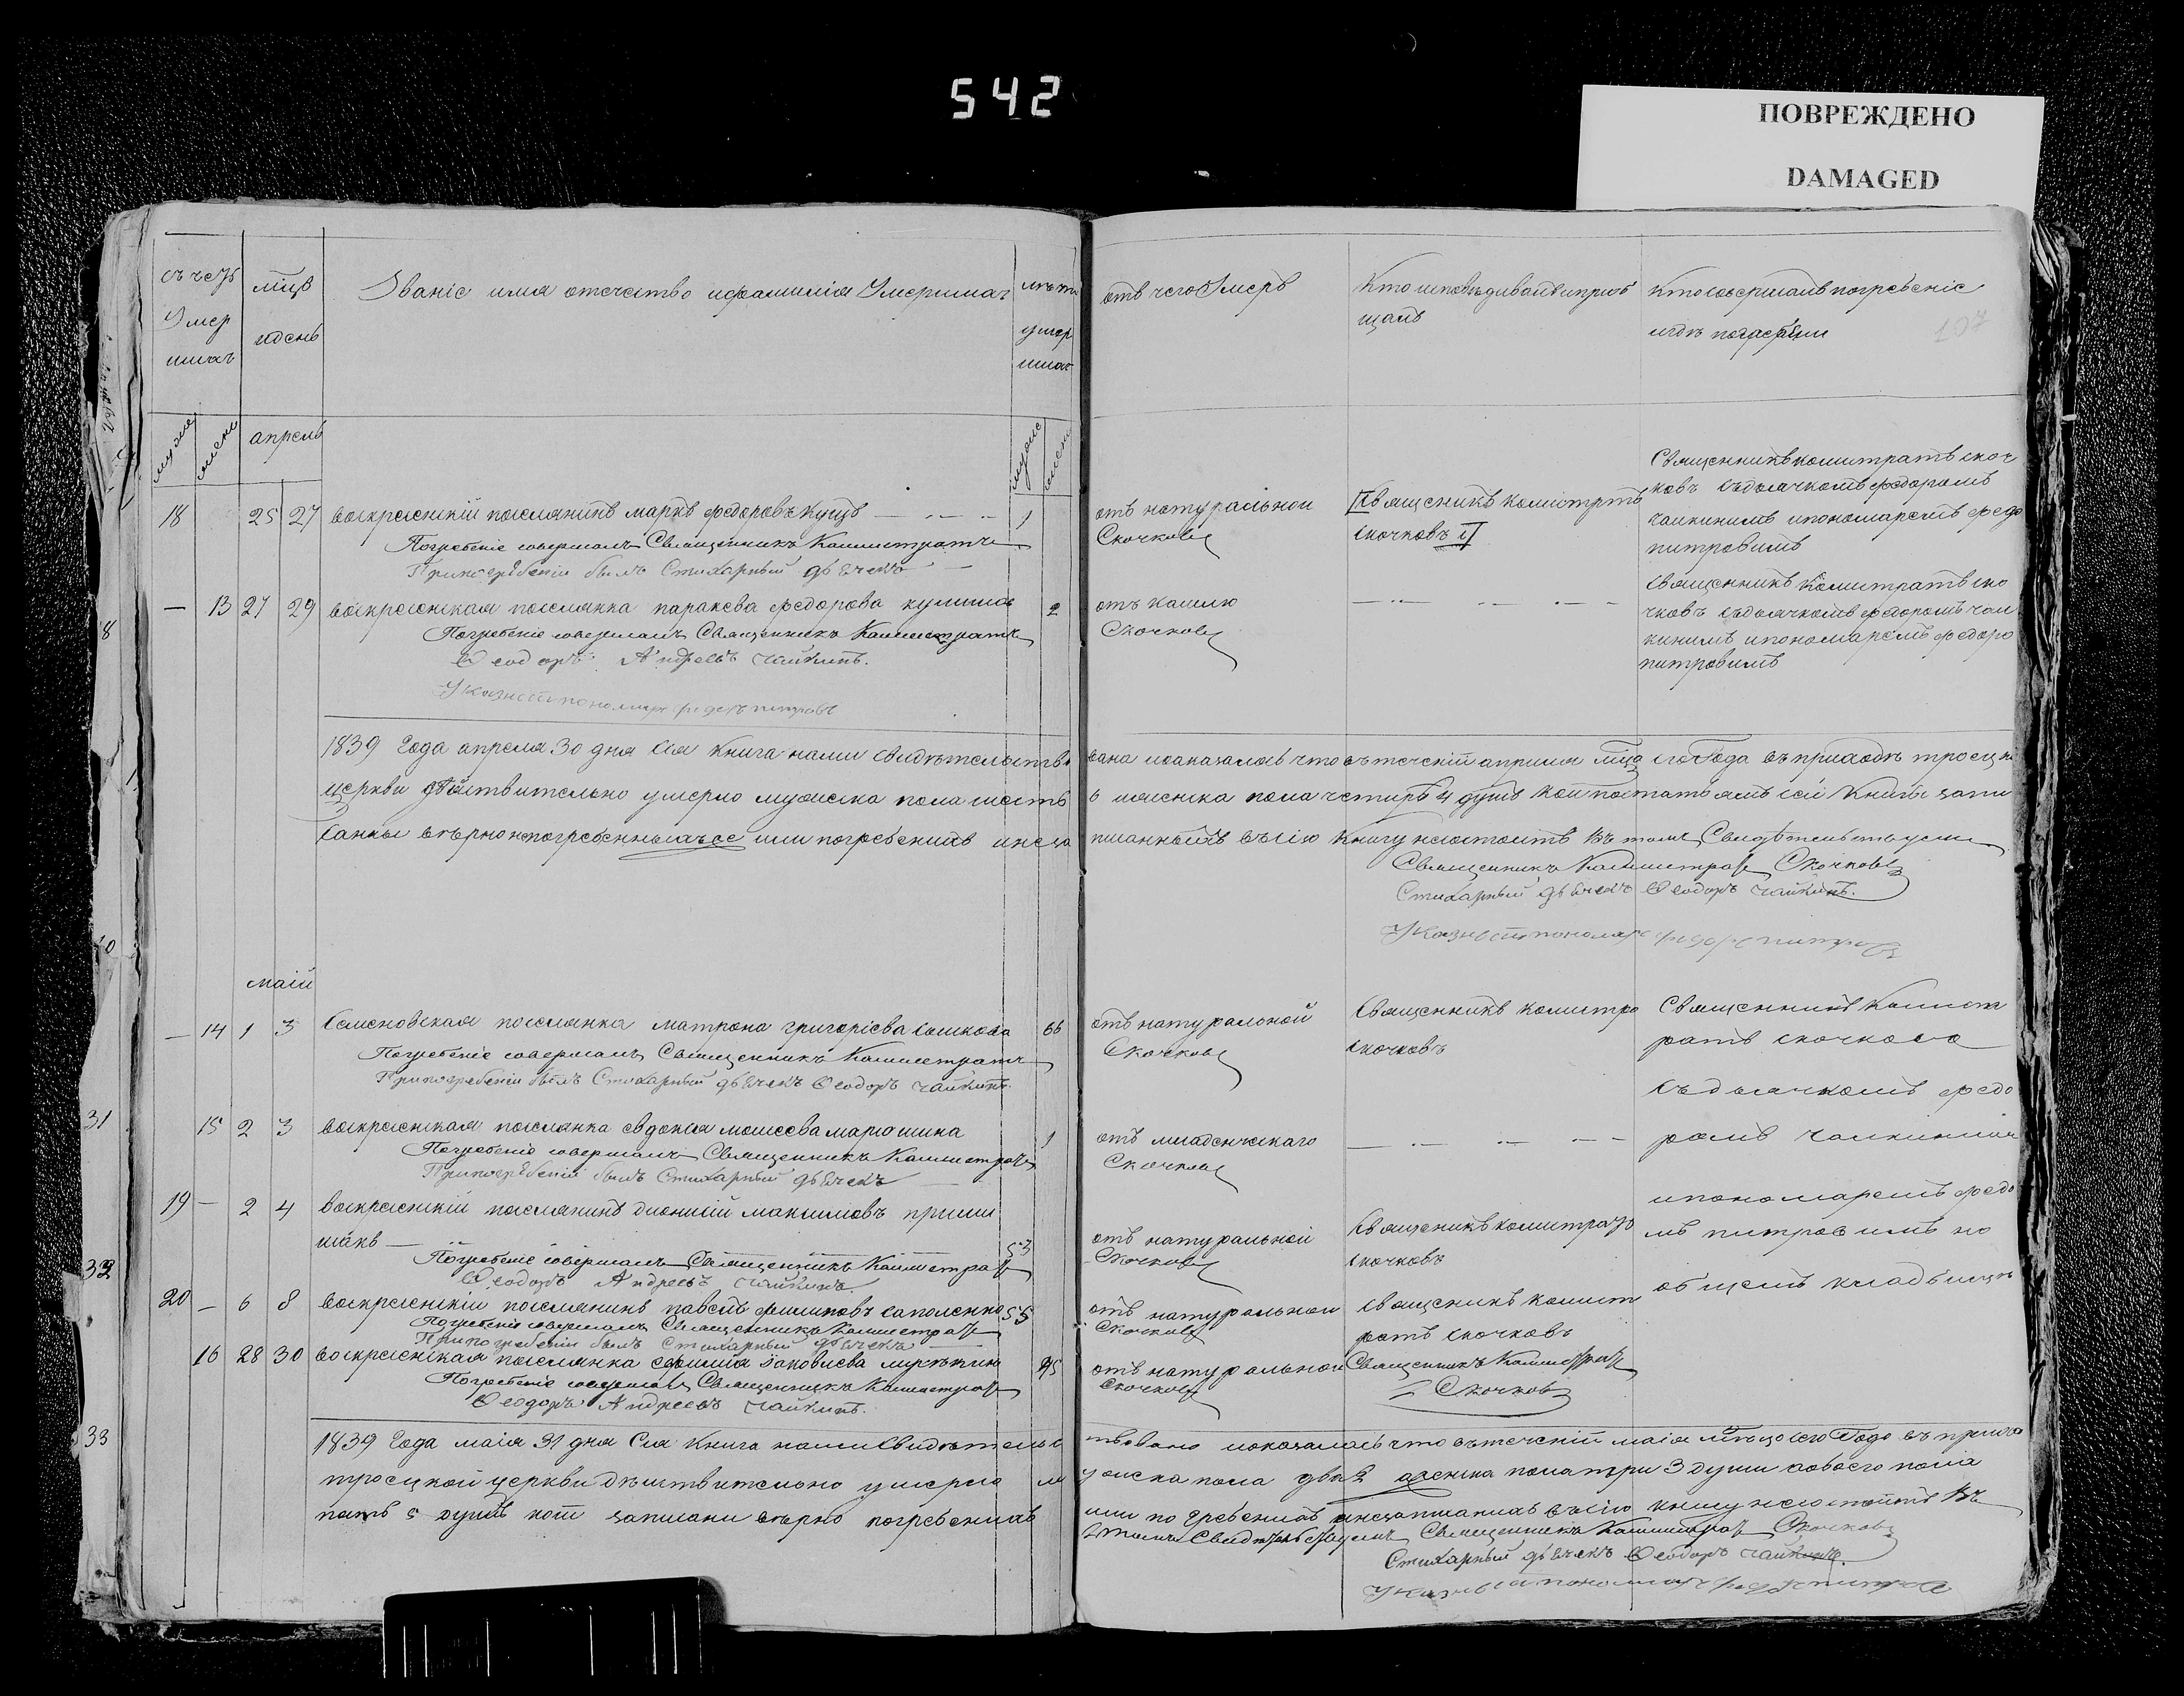 542
ПОВРЕЖДЕНО
DAMAGED
107
счетъ
Умер
шихъ
мцъ
и день
Званіе имя отечество и фамилія Умершаг
лѣта
умер
шаг
отъ чего Умеръ
Кто исповѣдывалъ и приоб
щалъ
Кто совершалъ погребеніе
и гдѣ погребены
апрель
18 25 27 воскресенскій поселянинъ маркъ федоровъ куцъ 1
Погребеніе совершалъ Священникъ Калистратъ
При погребеніи былъ Стихарный дьячекъ
отъ натуральной
Скочковъ
Священикъ
скочковъ
Священникъ комистратъ скоч
ковъ съдьячкомъ федоромъ
чаикинимъ и пономаремъ федо
питровимъ
— 13 27 29 воскресенская поселянка параксва федорова 2
Погребеніе совершалъ Священникъ Калистратъ
Ѳеодоръ Андреевъ Чайкинъ.
Указной пономарь федоръ питровъ
отъ кашлю
Скочковъ
священникъ комистратъ ско
чковъ съдьячкомъ федоромъ чаи
кинимъ и пономаремъ федоро
питровимъ
1839 Года апреля 30 дня Сія Книга нами свидѣтельство
вана и оказалось что въ теченій априля мца сего Года въ приходѣ троецко
церкви дѣйствительно умерло мужеска пола шесть
6 и женска пола четири 4 душъ кои по статьямъ сей Книги запи
санны вѣрно непогребенныхъ же или погребенихъ и неза
писанныхъ въ сію Книгу несостоитъ въ томъ Свидѣтельствуемъ
Священникъ Калистратъ Скочковъ
Стихарный дьячекъ Ѳеодоръ Чайкинъ.
Указной пономарь федоръ питровъ
маій
— 14 1 3 Семеновская поселянка матрона григоріева сошкова 66
Погребеніе совершалъ Священникъ Калистратъ
При погребеніи былъ Стихарный дьячекъ Ѳеодоръ Чайкинъ.
отъ натуральной
Скочковъ
Священникъ комистра
скочковъ
Священникъ комист
ратъ скочково
съ дьячкомъ федо
ромъ чаикиним
и пономаремъ федо
мъ питровимъ но
общемъ кладбищѣ
15 2 3 воскресенская поселянка евдокія мойсеева марюшина 1
Погребеніе совершалъ Священникъ Калистратъ
При погребеніи былъ Стихарный дьячекъ
отъ младенческаго
Скочковъ
19 — 2 4 воскресенскій поселянинъ дионисій максимовъ приши
шакъ — 53
Погребеніе совершалъ Священникъ Калистратъ
Ѳеодоръ Андреевъ Чайкинъ
отъ натуральной
Скочковъ
Священикъ комистрато
скочковъ
20 — 6 8 воскресенскій поселянинъ павелъ филиповъ саполенко 55
Погребеніе совершалъ Священникъ Калистратъ
При погребеніи былъ Стихарный дьячекъ
отъ натуральнои
Скочковъ
священикъ комист
ратъ скочковъ
16 28 30 воскресенская поселянка ефимія іаковлева 45
Погребеніе совершалъ Священникъ Калистратъ
Ѳеодоръ Андреевъ Чайкинъ.
отъ натуральнои
Скочковъ
Священникъ Калистратъ
Скочковъ
1839 Года маія 31 дня Сія Книга нами Свидѣтельс
твовано и оказалось что въ теченій маія мѣсяцо сего Года въ прихо
троецкой церкви дѣиствительно умерло м
ужеска пола два 2 женска пола три 3 души обоего пола
пять 5 душъ кои записани вѣрно погребенихъ
или погребенихъ и незаписаннихъ въ сію книгу несостоитъ Въ
томъ Свидѣтельствуемъ Священникъ Калистратъ Скочковъ
Стихарный дьячекъ Ѳеодоръ Чайкинъ.
Указной пономарь федоръ питровъ
8
31
32
33